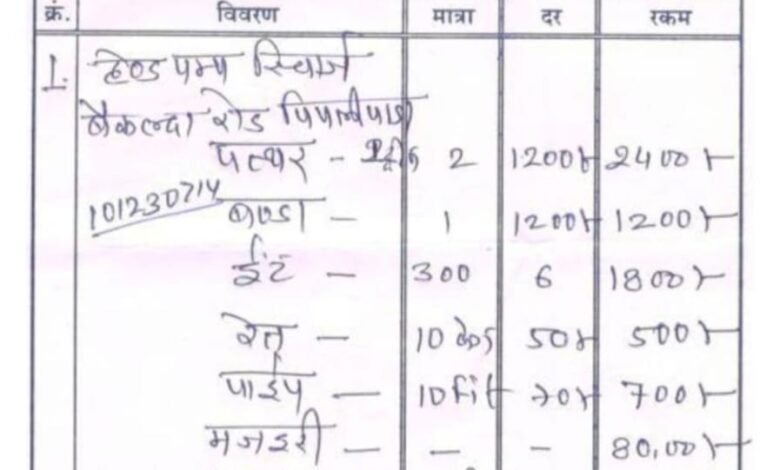 क्रं. विवरण मात्रा दर रकम
1. हेण्ड पम्प रिचार्ज
रोड
पत्थर - 2 1200/- 2400/-
101230714 बण्डा - 1 1200/- 1200/-
ईंट - 300 6 1800/-
रेत - 10 50/- 500/-
पाईप - 10 fit 70/- 700/-
मजदूरी - - - 80,00/-